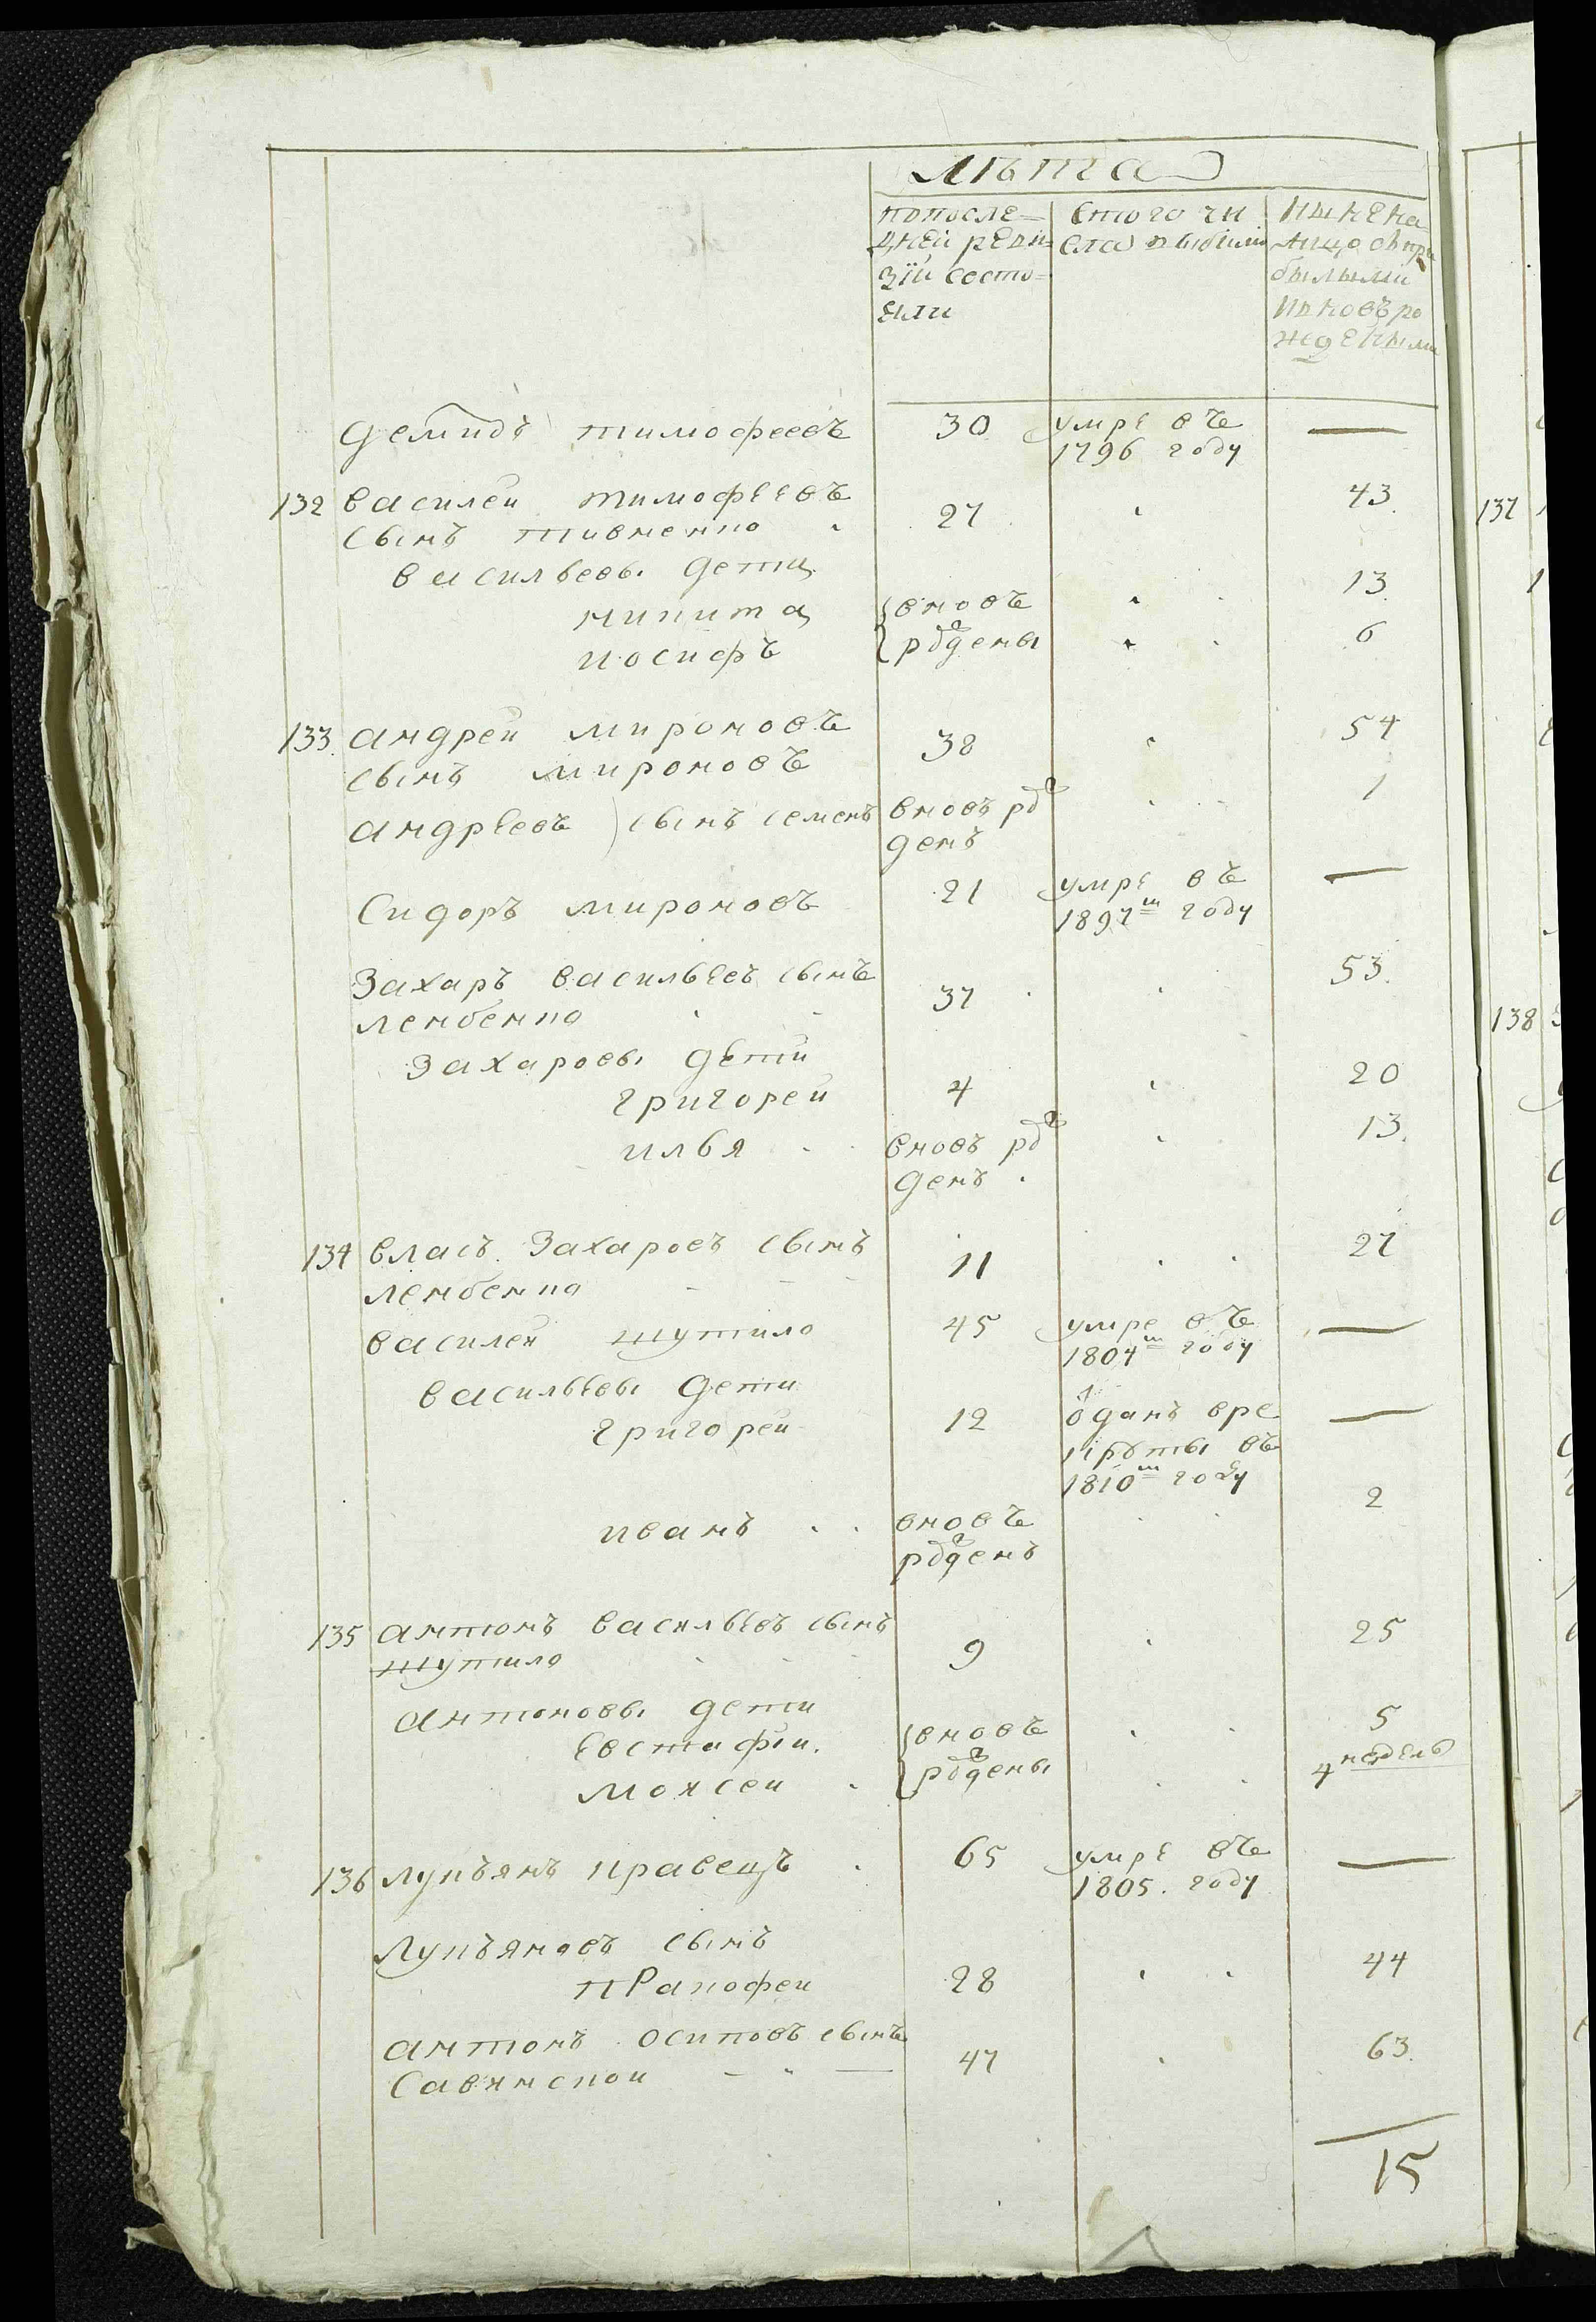 Лѣта
попосле=
дней реви=
зіи состо=
яли
Стого чи
сла выбыли
Ныне на
лицо съ при
былыми
и вновъ ро
жденными
Демидъ Тимофеевъ 30 умре въ —
1796 году
132 Василей Тимофеевъ 27 43
сынъ Тивненко
Васильевы дети
Никита вновь 13
Иосифъ рождены 6
133 Андрей Мироновъ 38 54
сынъ Мироновъ
Андреевъ сынъ Семенъ вновъ рож 1
денъ
Сидоръ Мироновъ 21 умре въ —
1897м году
Захаръ Васильевъ сынъ 37 53
Лембенко
Захаровы дети
Григорей 4 20
Илья вновъ рож 13
денъ
134 Власъ Захаровъ сынъ 11 27
Лембенко
Василей Шутило 45 умре въ —
1804м году
Васильевы дети
Григорей 12 отданъ вре —
круты въ
1810м году
Иванъ вновь 2
рожденъ
135 Антонъ Васильевъ сынъ 9 25
Шутило
Антоновы дети
Евстафий вновь 5
Моисей рождены 4 недель
136 Лукъянъ Кравецъ 65 умре въ —
1805. году
Лукъяновъ сынъ
Пракофей 28 44
Антонъ Осиповъ сынъ 47 63
Савинской
15
137
138